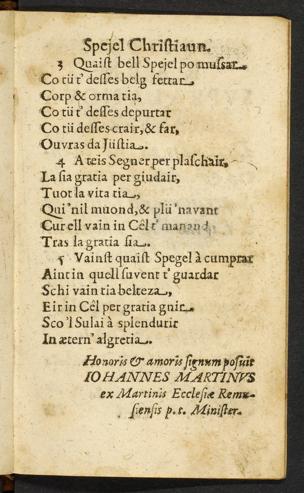 Spejel Christiaun.
3 Quaist bell Spejel po mussar
Co tü t' desses belg fettar
Corp & orma tia,
Co tü t' desses depurtar
Co tü desses crair, & far,
Ouvras da Jüstia.
4 A teis Segner per plaschair,
La sia gratia per giudair,
Tuot la vita tia,
Qui 'nil muond, & plü 'navant
Cur ell vain in Cêl t' manand
Tras la gratia sia.
5 Vainst quaist Spegel à cumprar
Aint in quell suvent t' guardar
Schi vain tia belteza,
Eir in Cêl per gratia gnir
Sco 'l Sulai â splendurir
In ætern' algretia.
Honoris & amoris signum posuit
IOHANNES MARTINVS
ex Martinis Ecclesiæ Remu-
siensis p. t. Minister.